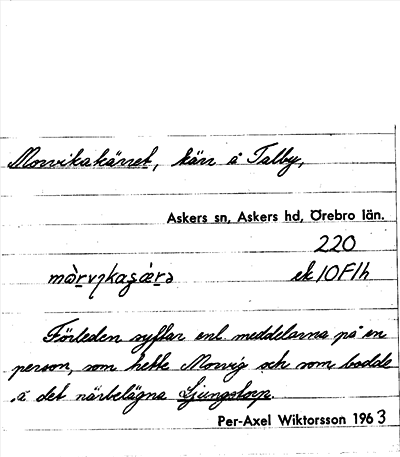 Morvikakärret, kärr å Talby,
Askers sn, Askers hd, Örebro län.
220
màrvıkaşæ̀rə ek 10F1h
Förleden syftar enl meddelarna på en
person, som hette Morvig och som bodde
å det närbelägna Ljungstorp.
Per-Axel Wiktorsson 1963